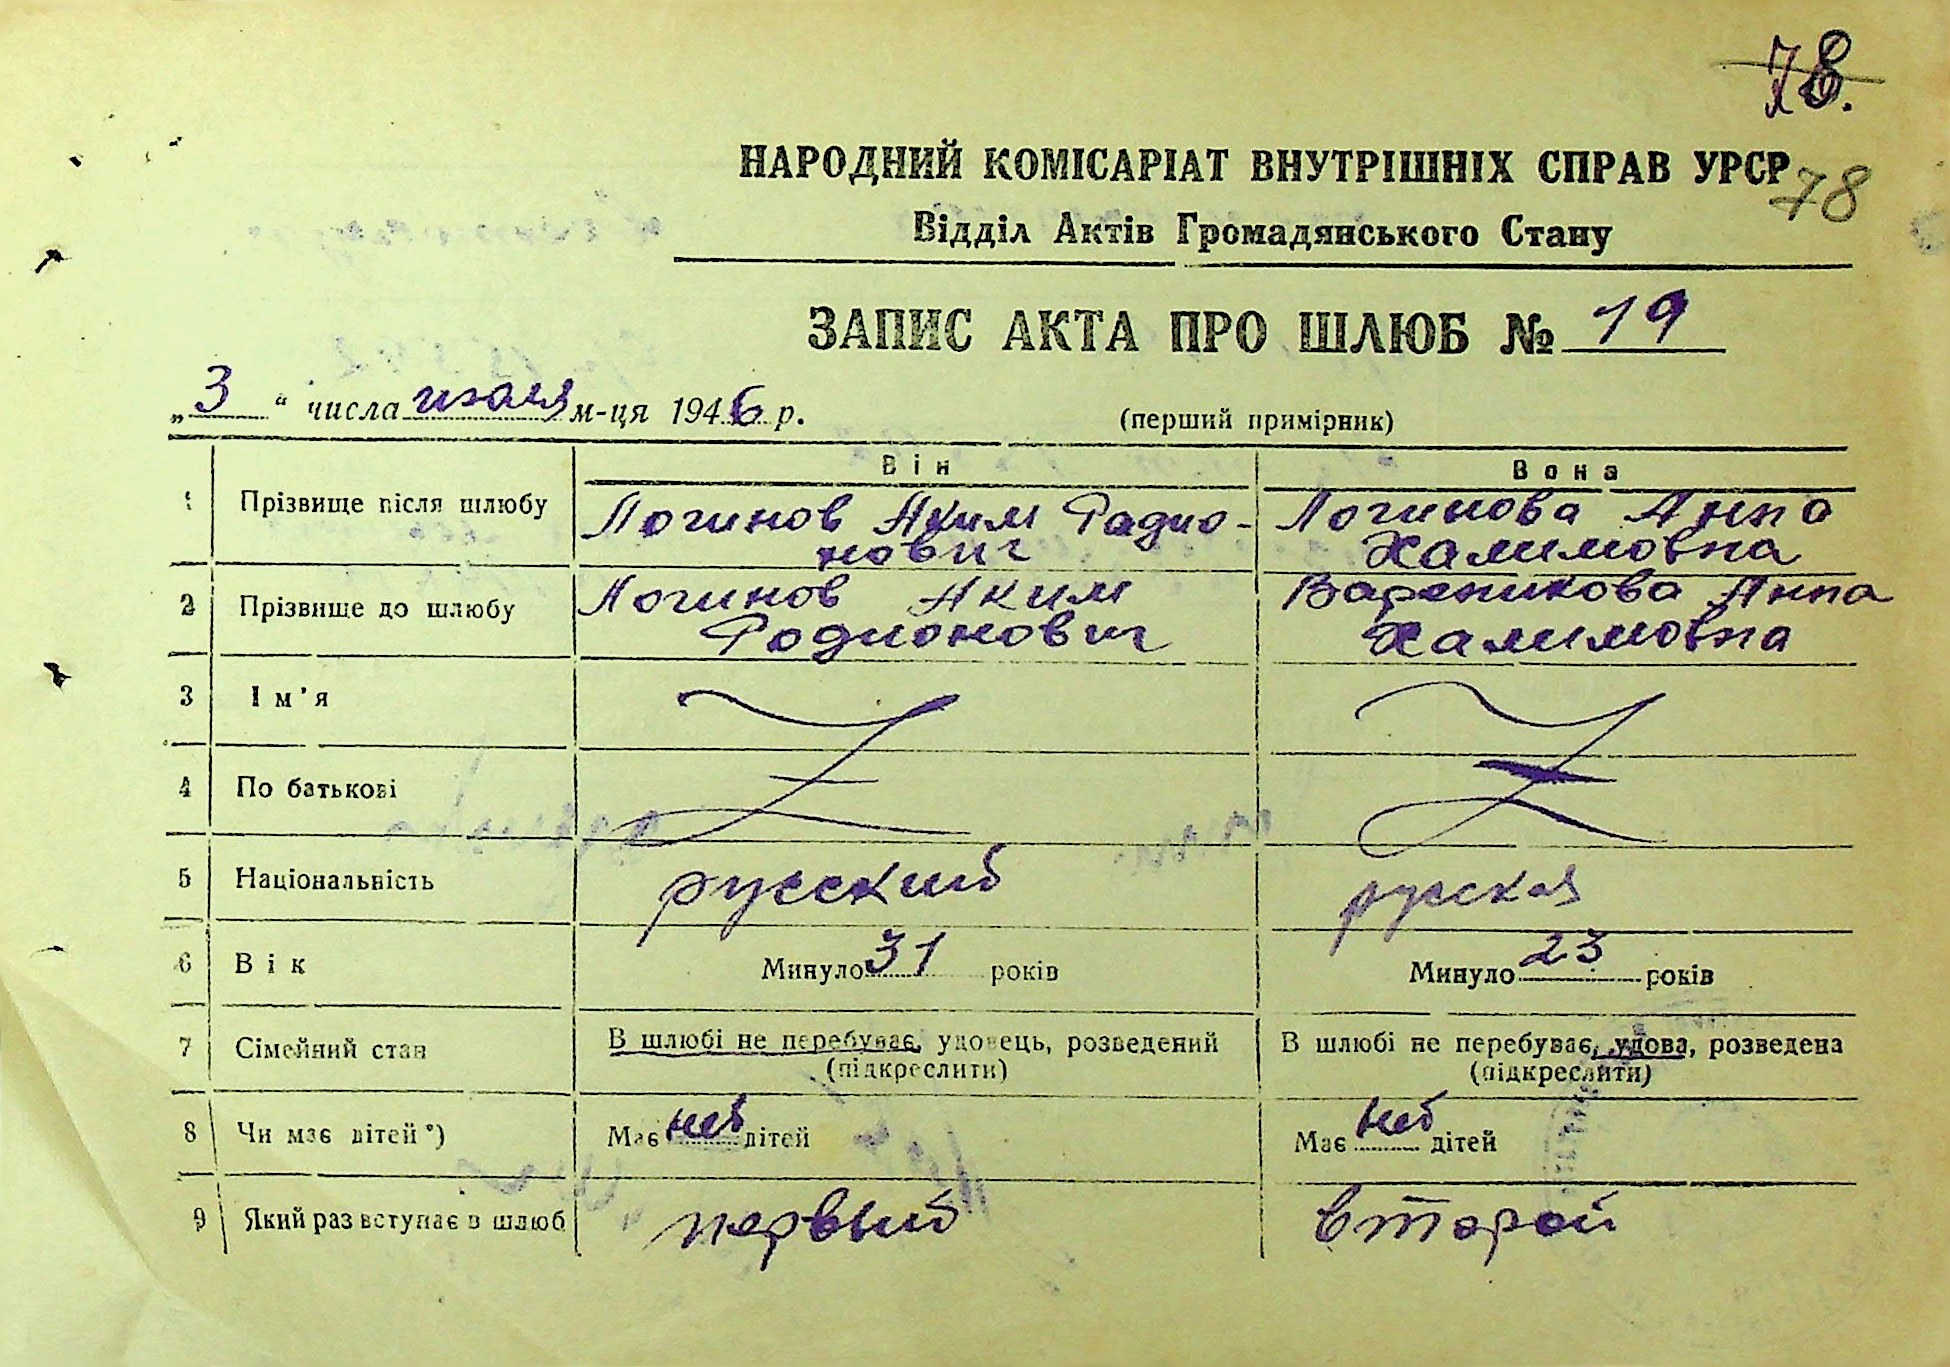 78.
НАРОДНИЙ КОМІСАРІАТ ВНУТРІШНІХ СПРАВ УРСР
78
Відділ Актів Громадянського Стану
ЗАПИС АКТА ПРО ШЛЮБ № 19
„ 3 “ числа июля м-ця 1946 р.
(перший примірник)
Він
Вона
1 Прізвище після шлюбу
Логинов Аким Радио-
нович
Логинова Анна
Халимовна
2 Прізвище до шлюбу
Логинов Аким
Родионович
Вареникова Анна
Халимовна
3 Ім'я
4 По батькові
5 Національність русский русская
6 Вік Минуло 31 років Минуло 23 років
7 Сімейний стан
В шлюбі не перебуває, удовець, розведений
(підкреслити)
В шлюбі не перебуває, удова, розведена
(підкреслити)
8 Чи має дітей*) Має нет дітей Має нет дітей
9 Який раз вступає в шлюб первый второй